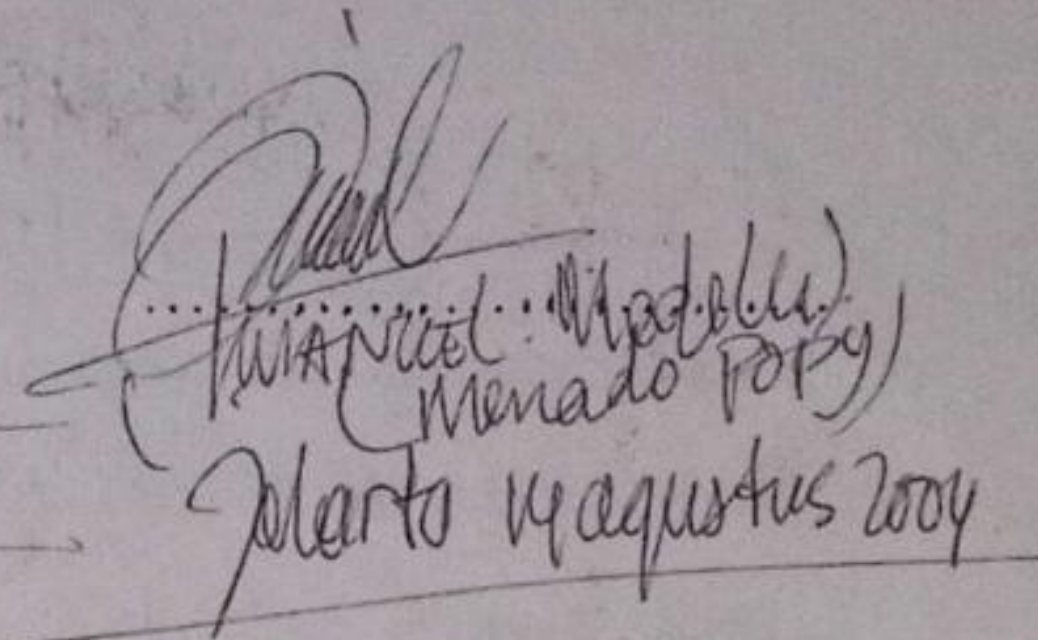 (IMANUEL. 
(Menado POPY)
Jakarta 14 agustus 2004